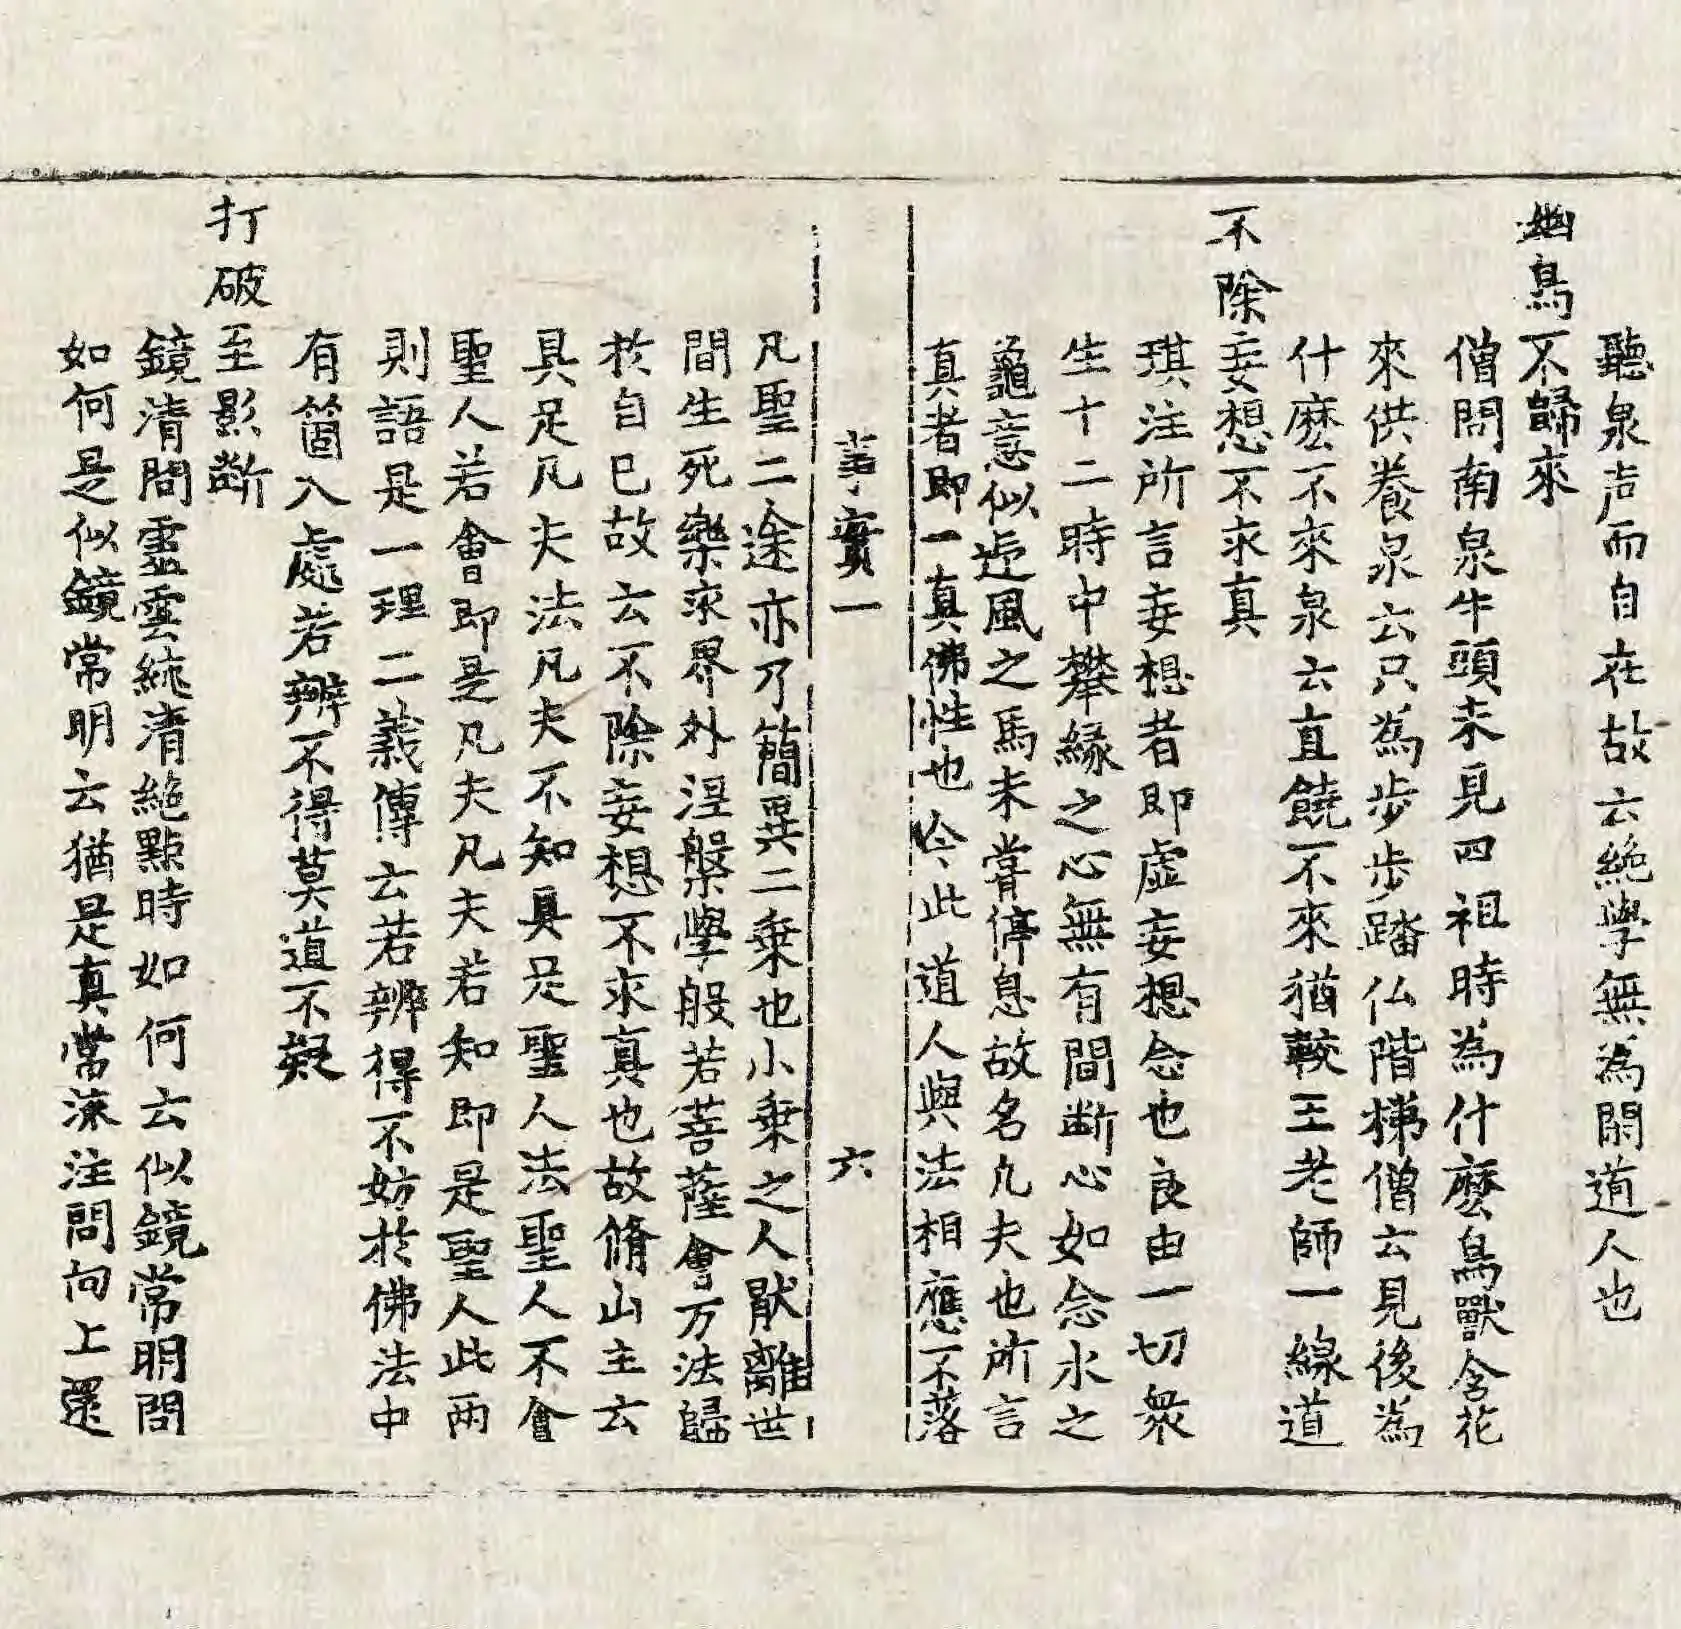 聽泉声而自在故云絶學無為閑道人也
幽鳥不歸來
僧問南泉牛頭未見四祖時為什麼鳥獸含花
來供養泉云只為步步踏仏階梯僧云見後為
什麼不來泉云直饒不來猶較王老師一線道
不除妄想不求真
琪注所言妄想者即虚妄想念也良由一切衆
生十二時中攀緣之心無有間断心如念水之
龜意似逆風之馬未甞停息故名凡夫也所言
真者即一真佛性也今此道人與法相應不落
事實一　六
凡聖二途亦乃簡異二乗也小乗之人猒離世
間生死樂求界外涅槃學般若菩薩會万法歸
於自己故云不除妄想不求真也故脩山主云
具足凡夫法凡夫不知具足聖人法聖人不會
聖人若會即是凡夫凡夫若知即是聖人此两
則語是一理二義傳云若辨得不妨於佛法中
有箇入處若辨不得莫道不疑
打破至影断
鏡清問靈雲純清絶點時如何云似鏡常明問
如何是似鏡常明云猶是真常流注問向上還